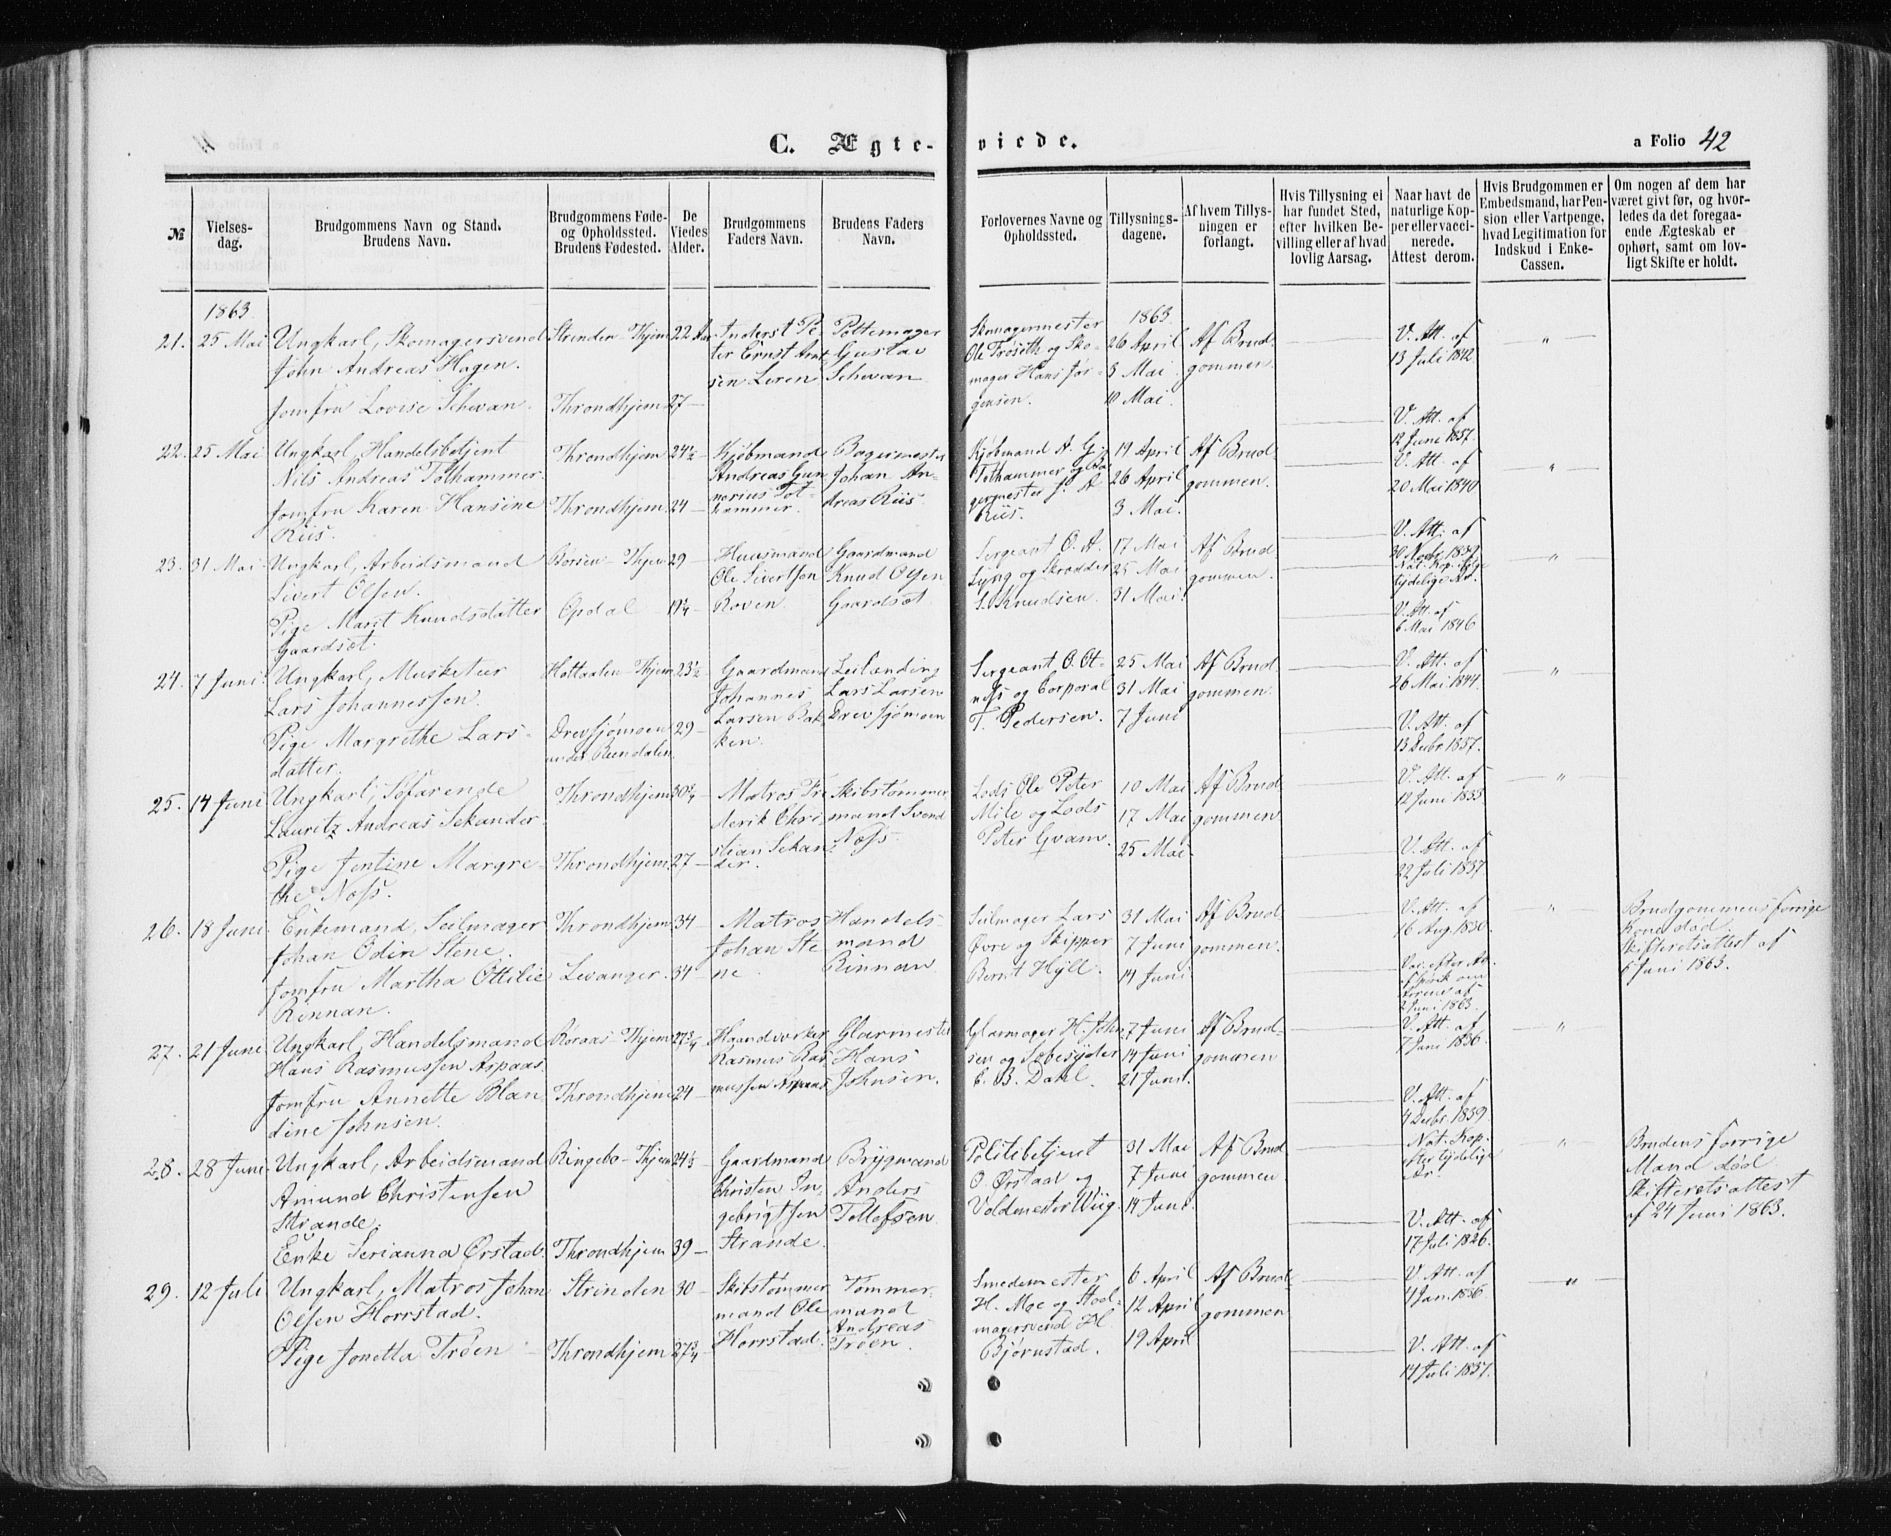 C. Ægte-
viede.
a Folio 42
№
Vielses-
dag.
Brudgommens Navn og Stand.
Brudens Navn.
Brudgommens Føde-
og Opholdssted.
Brudens Fødested.
De
Viedes
Alder.
Brudgommens
Faders Navn.
Brudens Faders
Navn.
Forlovernes Navne og
Opholdssted.
Tillysnings-
dagene.
Af hvem Tillys-
ningen er
forlangt.
Hvis Tillysning ei
har fundet Sted,
efter hvilken Be-
villing eller af hvad
lovlig Aarsag.
Naar havt de
naturlige Kop-
per eller vacci-
nerede.
Attest derom.
Hvis Brudgommen er
Embedsmand, har Pen-
sion eller Vartpenge,
hvad Legitimation for
Indskud i Enke-
Cassen.
Om nogen af dem har
været givt før, og hvor-
ledes da det foregaa-
ende Ægteskab er
ophørt, samt om lov-
ligt Skifte er holdt.
1863.
21. 25 Mai
Ungkarl, Skomagersvend
John Andreas Hagen.
Jomfru Lovise Schwan.
Strinden Thjem
Throndhjem
22 Aar
27
Anderst Pe
ter Ernst Arnt
sen Leren
Pottemager
Gustav
Schwan
Skomagermester
Ole Trøseth og Sko-
mager Hans Jør-
gensen.
1863
26 April
3 Mai
10 Mai.
Af Brud-
gommen.
V. Att. af
13 Juli 1842
V. Att. af
12 Juni 1837.
22. 25 Mai
Ungkarl, Handelsbetjent
Nils Andreas Tolhammer.
Jomfru Karen Hansine
Riis.
Throndhjem
Throndhjem
24½
24
Kjøbmand
Andreas Gun
nerius Tol-
hammer.
Bagermester
Johan An-
dreas Riis
Kjøbmand A. G.
Tolhammer og Ba
germester J. A
Riis.
19 April
26 April
3 Mai.
Af Brud
gommen.
V. Att. af
20 Mai 1840
V. Att. af
30 Novbr 1839
23. 31 Mai
Ungkarl, Arbeidsmand
Sivert Olsen.
Pige Marit Knudsdatter
Gaardsæt.
Børsen Thjem
Opdal
29
19¼
Huusmand
Ole Sivertsen
Roven.
Gaardmand
Knud Olsen
Gaardsæt
Sergeant O. A.
Lyng og Skrædder
S. Knudsen.
17 Mai
25 Mai
31 Mai.
Af Brud
gommen.
Nat. Kop. efter
tydelige Ar.
V. Att. af
6 Mai 1846
24. 7 Juni
Ungkarl, Musketer
Lars Johannessen.
Pige Margrethe Lars-
datter.
Holtaalen Thjem
Drevsjømoen
under Rendalen
23½
29
Gaardmand
Johannes
Larsen Bak
ken.
Leilænding
Lars Larsen
Drevsjømoen
Sergeant O. Ot-
nes og Corporal
T. Pedersen.
25 Mai
31 Mai
7 Juni
Af Brud
gommen.
V. Att. af
26 Mai 1844.
V. Att. af
13 Decbr 1837.
25. 14 Juni
Ungkarl, Søfarende
Lauritz Andreas Sekander.
Pige Jentine Margre-
the Næss.
Throndhjem
Throndhjem
30¼
27
Matros Fre
derik Chri
stian Sekan
der.
Skibstømmer
mand Svend
Næss.
Lods Ole Peter
Mile og Lods
Peter Gvam.
10 Mai
17 Mai
25 Mai
Af Brud
gommen
V. Att. af
12 Juni 1833
V. Att. af
22 Juli 1837
26. 18 Juni
Enkemand, Seilmager
Johan Odin Stene.
Jomfru Martha Ottilie
Rinnan.
Throndhjem
Levanger.
34
34
Matros
Johan Ste
ne.
Handels-
mand
Rinnan
Seilmager Lars
Øvre og Skipper
Bernt Hyll.
31 Mai
7 Juni
14 Juni
Af Brud
gommen.
V. Att. af
16 Aug. 1830.
2 Juni 1863.
Brudgommens forrige
Kone død.
Skifteretsattest af
6 Juni 1863.
27. 21 Juni
Ungkarl, Handelsmand
Hans Rasmussen Aspaas.
Jomfru Annette Blan
dine Johnsen.
Røraas Thjem
Throndhjem
27¾
24
Haandverker
Rasmus Ras
mussen Aspaas
Glarmester
Hans
Johnsen.
Glarmager H. John
sen og Sæbesyder
E. B. Dahl.
7 Juni
14 Juni
21 Juni.
Af Brud-
gommen
V. Att. af
7 Juni 1836.
V. Att. af
4 Decbr 1839
28. 28 Juni
Ungkarl, Arbeidsmand
Amund Christensen
Strande.
Enke Serianna Ørstad.
Ringebo Thjem
Throndhjem
24½
39
Gaardmand
Christen In-
gebrigtsen
Strande.
Brygmand
Anders
Tollefsen
Politibetjent
O. Ørstad og
Voldmester Wiig.
31 Mai
7 Juni
14 Juni.
Af Brud
gommen
Nat. Kop.
efter tydelige
Ar.
V. Att. af
17 Juli 1826.
Brudens forrige
Mand død
Skifteretsattest
af 24 Juni 1863.
29. 12 Juli
Ungkarl, Matros Johan
Olsen Horrstad.
Pige Jonetta Trøen
Strinden
Throndhjem
30
27¾
Skibstømmer
mand Ole
Horrstad.
Tømmer-
mand
Andreas
Trøen.
Smedemester
H. Moe og Stool-
magersvend H.
Bjørnstad.
6 April
12 April
19 April
Af Brud
gommen
V. Att. af
4 Jan. 1836
V. Att. af
14 Juli 1837.